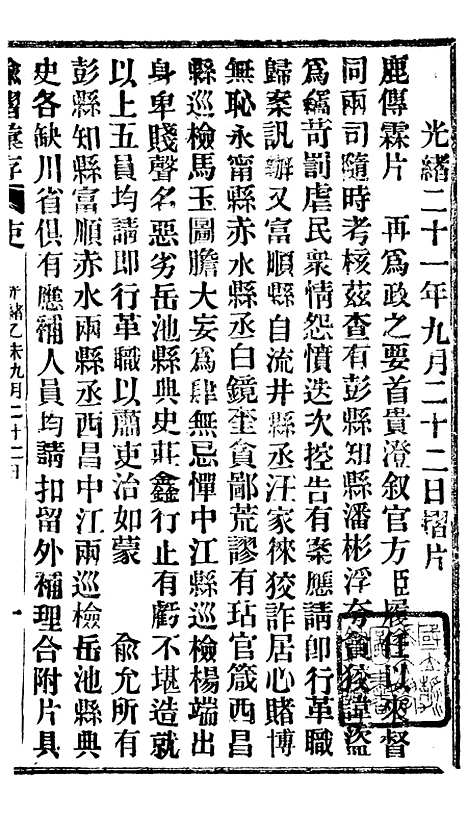 光緒二十一年九月二十二日摺片
鹿傳霖片　再爲政之要首貴澄敘官方臣履任以來督
同兩司隨時考核茲查有彭縣知縣潘彬浮夸貪狡諱盜
爲竊苛罰虐民衆情怨憤迭次控告有案應請卽行革職
歸案訊辦又富順縣自流井縣丞汪家徠狡詐居心賭博
無恥永甯縣赤水縣丞白鏡奎貪鄙荒謬有玷官箴西昌
縣巡檢馬玉圖膽大妄爲肆無忌憚中江縣巡檢楊端出
身卑賤聲名惡劣岳池縣典史莊鑫行止有虧不堪造就
以上五員均請即行革職以肅吏治如蒙　　俞允所有
彭縣知縣富順赤水兩縣丞西昌中江兩巡檢岳池縣典
史各缺川省俱有應補人員均請扣留外補理合附片具
諭摺彙存　吏　光緒乙未九月二十二日　一